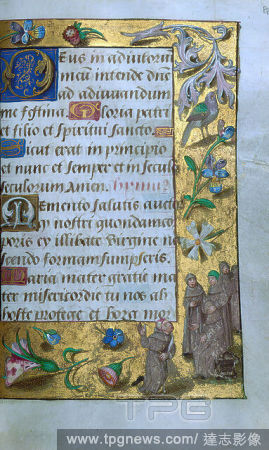 Deus in adiutoriu
meu intende dne
ad adiuvandum
me festina. Gloria patri
et filio et Spiritui sancto.
Sicut erat in principio
et nunc et semper et in secula
seculorum Amen.
Memento salutis auctor
nostri quondam cor
poris ex illibata virgine na
scendo formam sumpseris.
Maria mater gratie ma
ter misericordie tu nos ab
hoste protege et hora mor
TPG
www.tpgnews.com / 達志影像